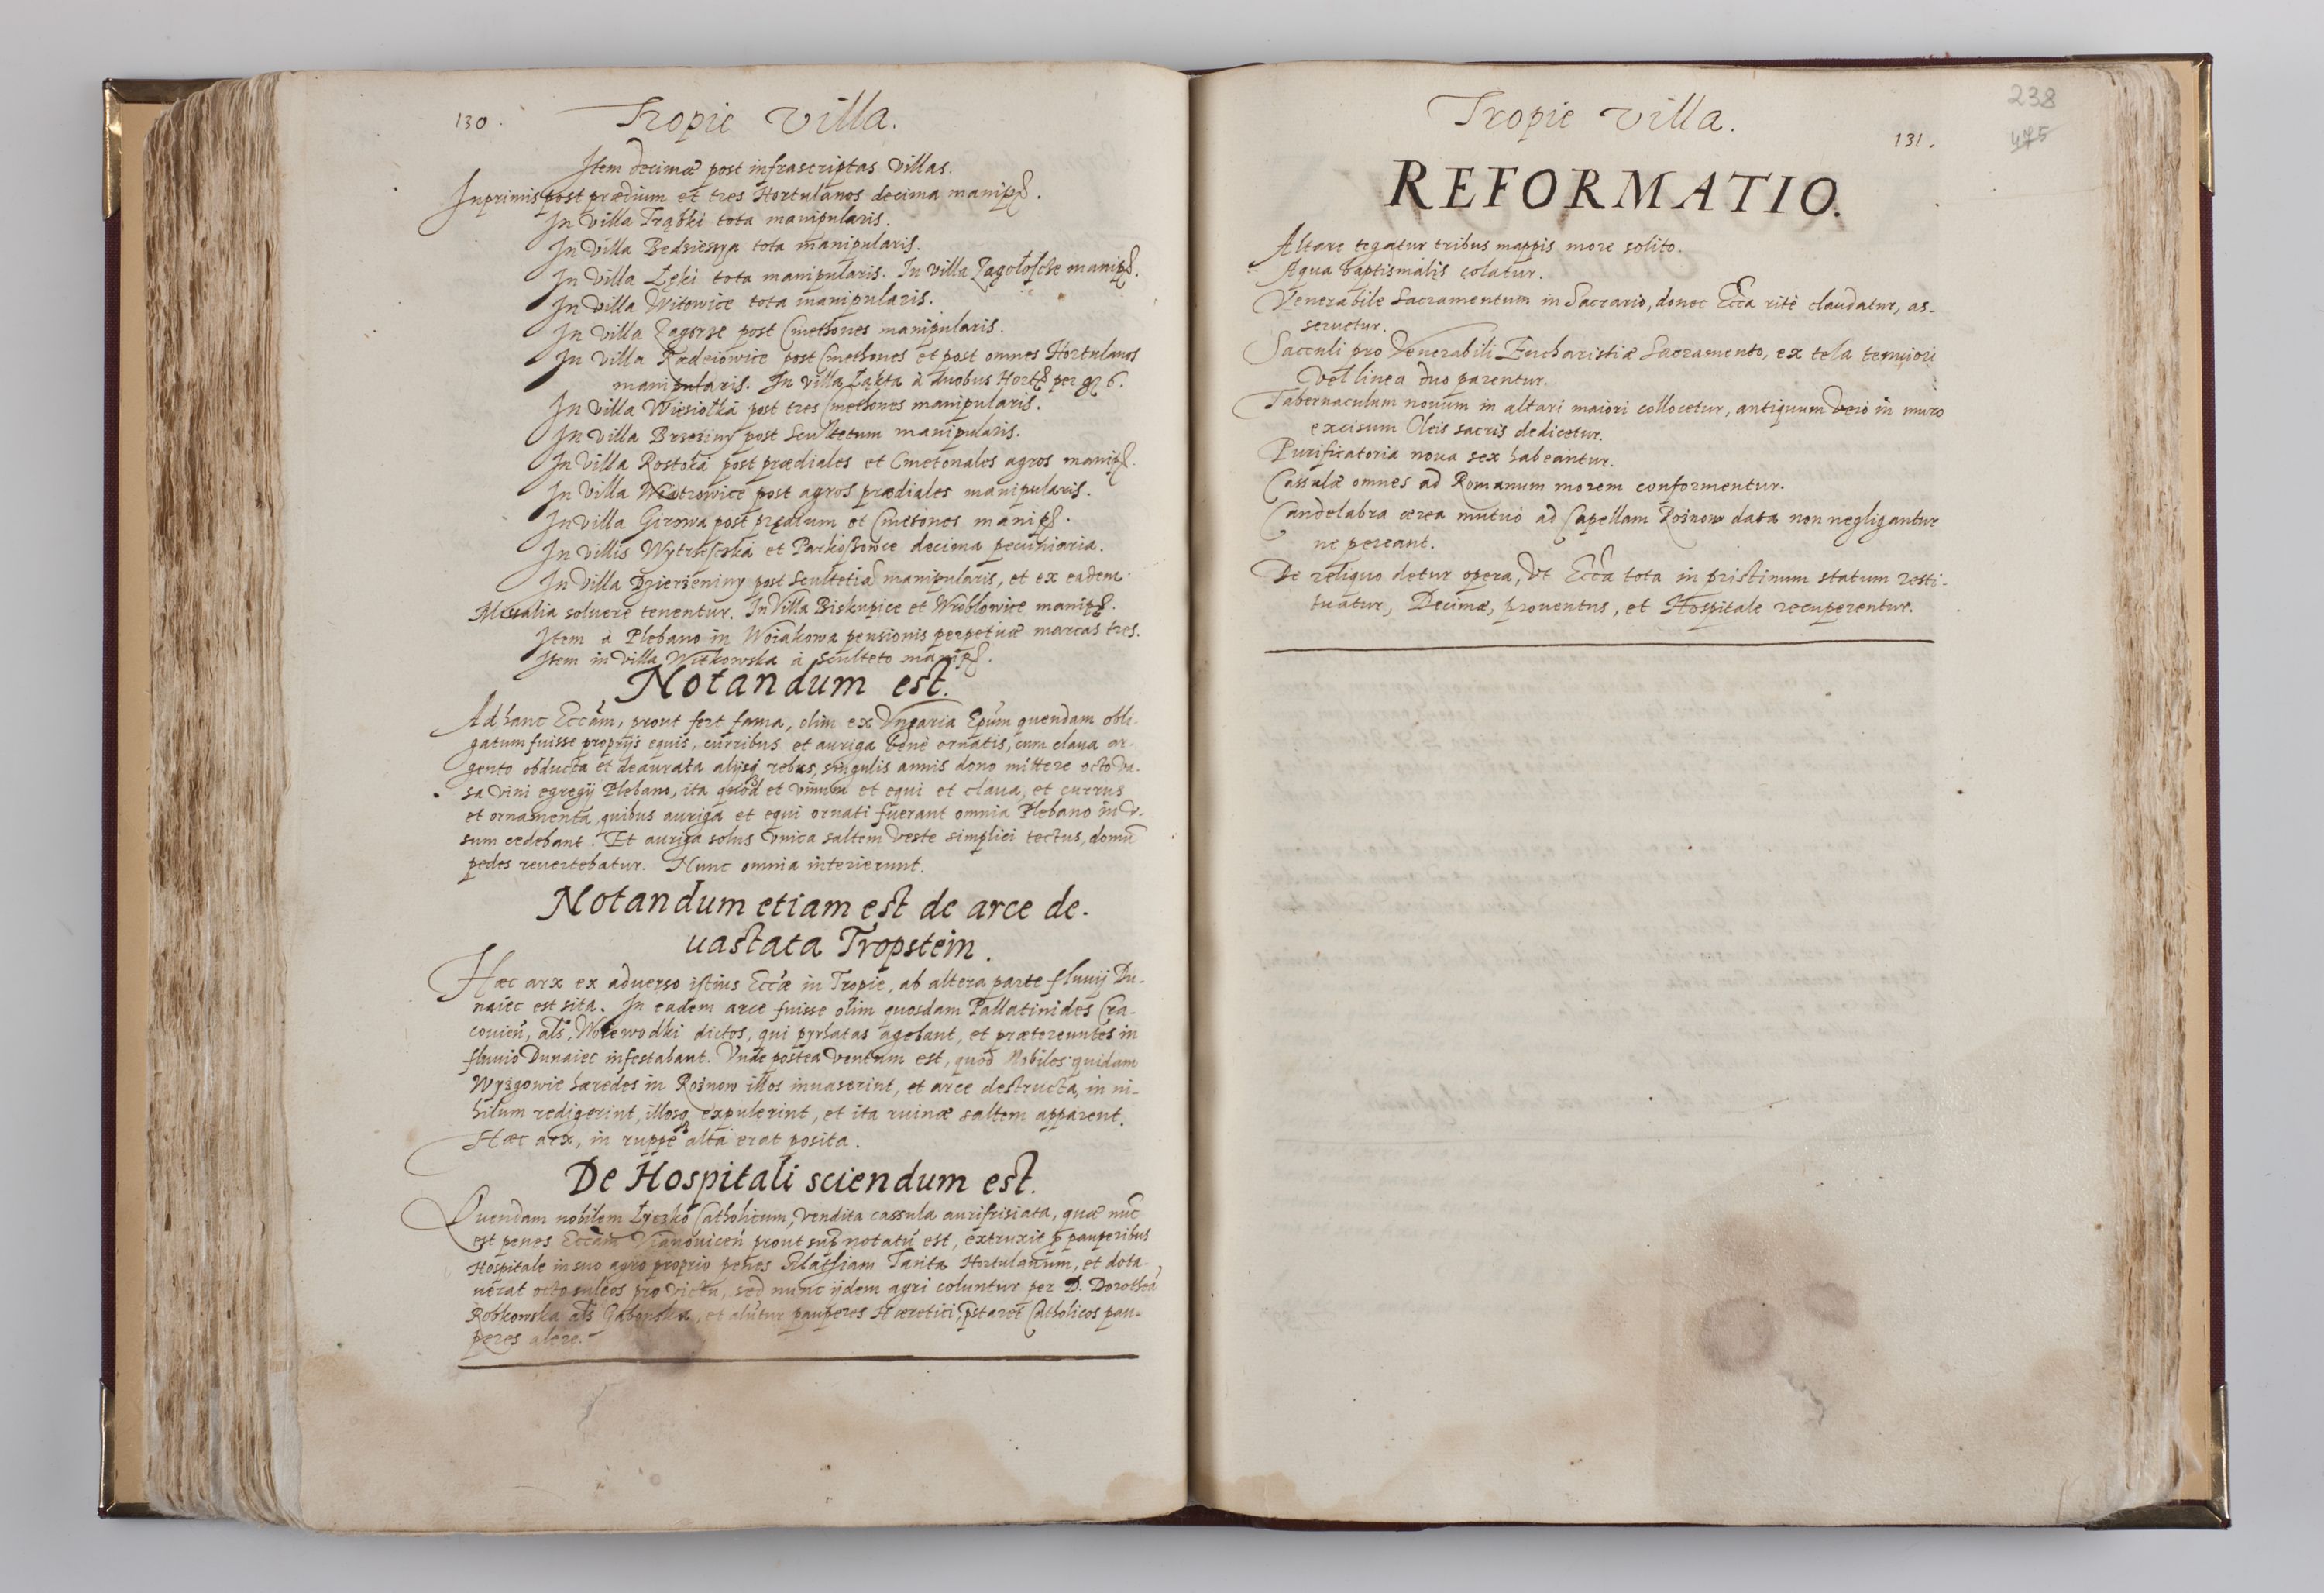 130.
Tropie Villa.
Item decimæ post infrascriptas Villas.
Inprimis post prædium et tres Hortulanos decima manip.
In Villa Trąbki tota manipularis.
In Villa tota manipularis.
In Villa Łęki tota manipularis. In Villa manip.
In Villa Witowice tota manipularis.
In Villa Zagorze post Cmethones manipularis.
In Villa Radeiowice post Cmethones et post omnes Hortulanos
manipularis. In Villa Łąkta à duobus Hort per gr 6.
In Villa Wiesiołka post tres Cmethones manipularis.
In Villa Brzeziny post Scultetum manipularis.
In Villa Rostoka post prædiales et Cmetonales agros manip.
In Villa Wiatrowice post agros prædiales manipularis.
In Villa Girowa post prædium et Cmetones manip.
In Villis et decima pecuniaria.
In Villa Dzierzeniny post Scultetiã manipularis, et ex eadem
Missalia soluere tenentur. In Villa Biskupice et Wroblowice manip.
Item à Plebano in Woiakowa pensionis perpetuæ marcas tres.
Item in Villa Witkowska à Sculteto manip.
Notandum est.
Ad hanc Eccãm, prout fert fama, olim ex Vngaria Epũm quendam obli-
gatum fuisse proprijs equis, curribus et auriga bene ornatis, cum claua ar-
gento obducta et deaurata alijsq rebus, singulis annis dono mittere octo va-
sa vini egregij Plebano, ita quod et vinum et equi et claua, et currus
et ornamenta, quibus auriga et equi ornati fuerant omnia Plebano in v-
sum cedebant. Et auriga solus vnica saltem veste simplici tectus, domũ
pedes reuertebatur. Nunc omnia interierunt.
Notandum etiam est de arce de-
uastata Tropstein.
Hæc arx ex aduerso istius Eccæ in Tropie, ab altera parte fluuij Du-
naiec est sita. In eadem arce fuisse olim quosdam Pallatinides Cra-
couień, als Woiewodki dictos, qui pyrhatas agebant, et prætereuntes in
fluuio Dunaiec infestabant. Vnde postea ventum est, quod Nobiles quidam
Wyzgowie hæredes in Roznow illos inuaserint, et arce destructa, in ni-
hilum redigerint, illosq expulerint, et ita ruinæ saltem apparent.
Hæc arx, in ruppe alta erat posita.
De Hospitali sciendum est.
Quendam nobilem Łyczko Catholicum, vendita cassula aurifrisiata, quæ nũc
est penes Eccãm prout sup notatũ est, extruxit p pauperibus
Hospitale in suo agro proprio penes Mathiam Tanta Hortulanum, et dota-
uerat octo sulcos pro victu, sed nunc ijdem agri coluntur per D. Dorotheã
Robkowska als, et alũtur pauperes Hæretici, pstaret Catholicos pau-
peres alere.
Tropie Villa.
131.
238
475
REFORMATIO.
Altare tegatur tribus mappis more solito.
Aqua baptismalis colatur.
Venerabile Sacramentum in Sacrario, donec Ecca ritè claudatur, as-
seruetur.
Sacculi pro Venerabili Eucharistiæ Sacramento, ex tela tenuiori
vel linea duo parentur.
Tabernaculum nouum in altari maiori collocetur, antiquum verò in muro
excisum Oleis sacris dedicetur.
Purificatoria noua sex habeantur.
Cassulæ omnes ad Romanum morem conformentur.
Candelabra ærea mutuò ad Capellam Roznow data non negligantur
ne pereant.
De reliquo detur opera, vt Ecca tota in pristinum statum resti-
tuatur, Decimæ, prouentus, et Hospitale recuperentur.